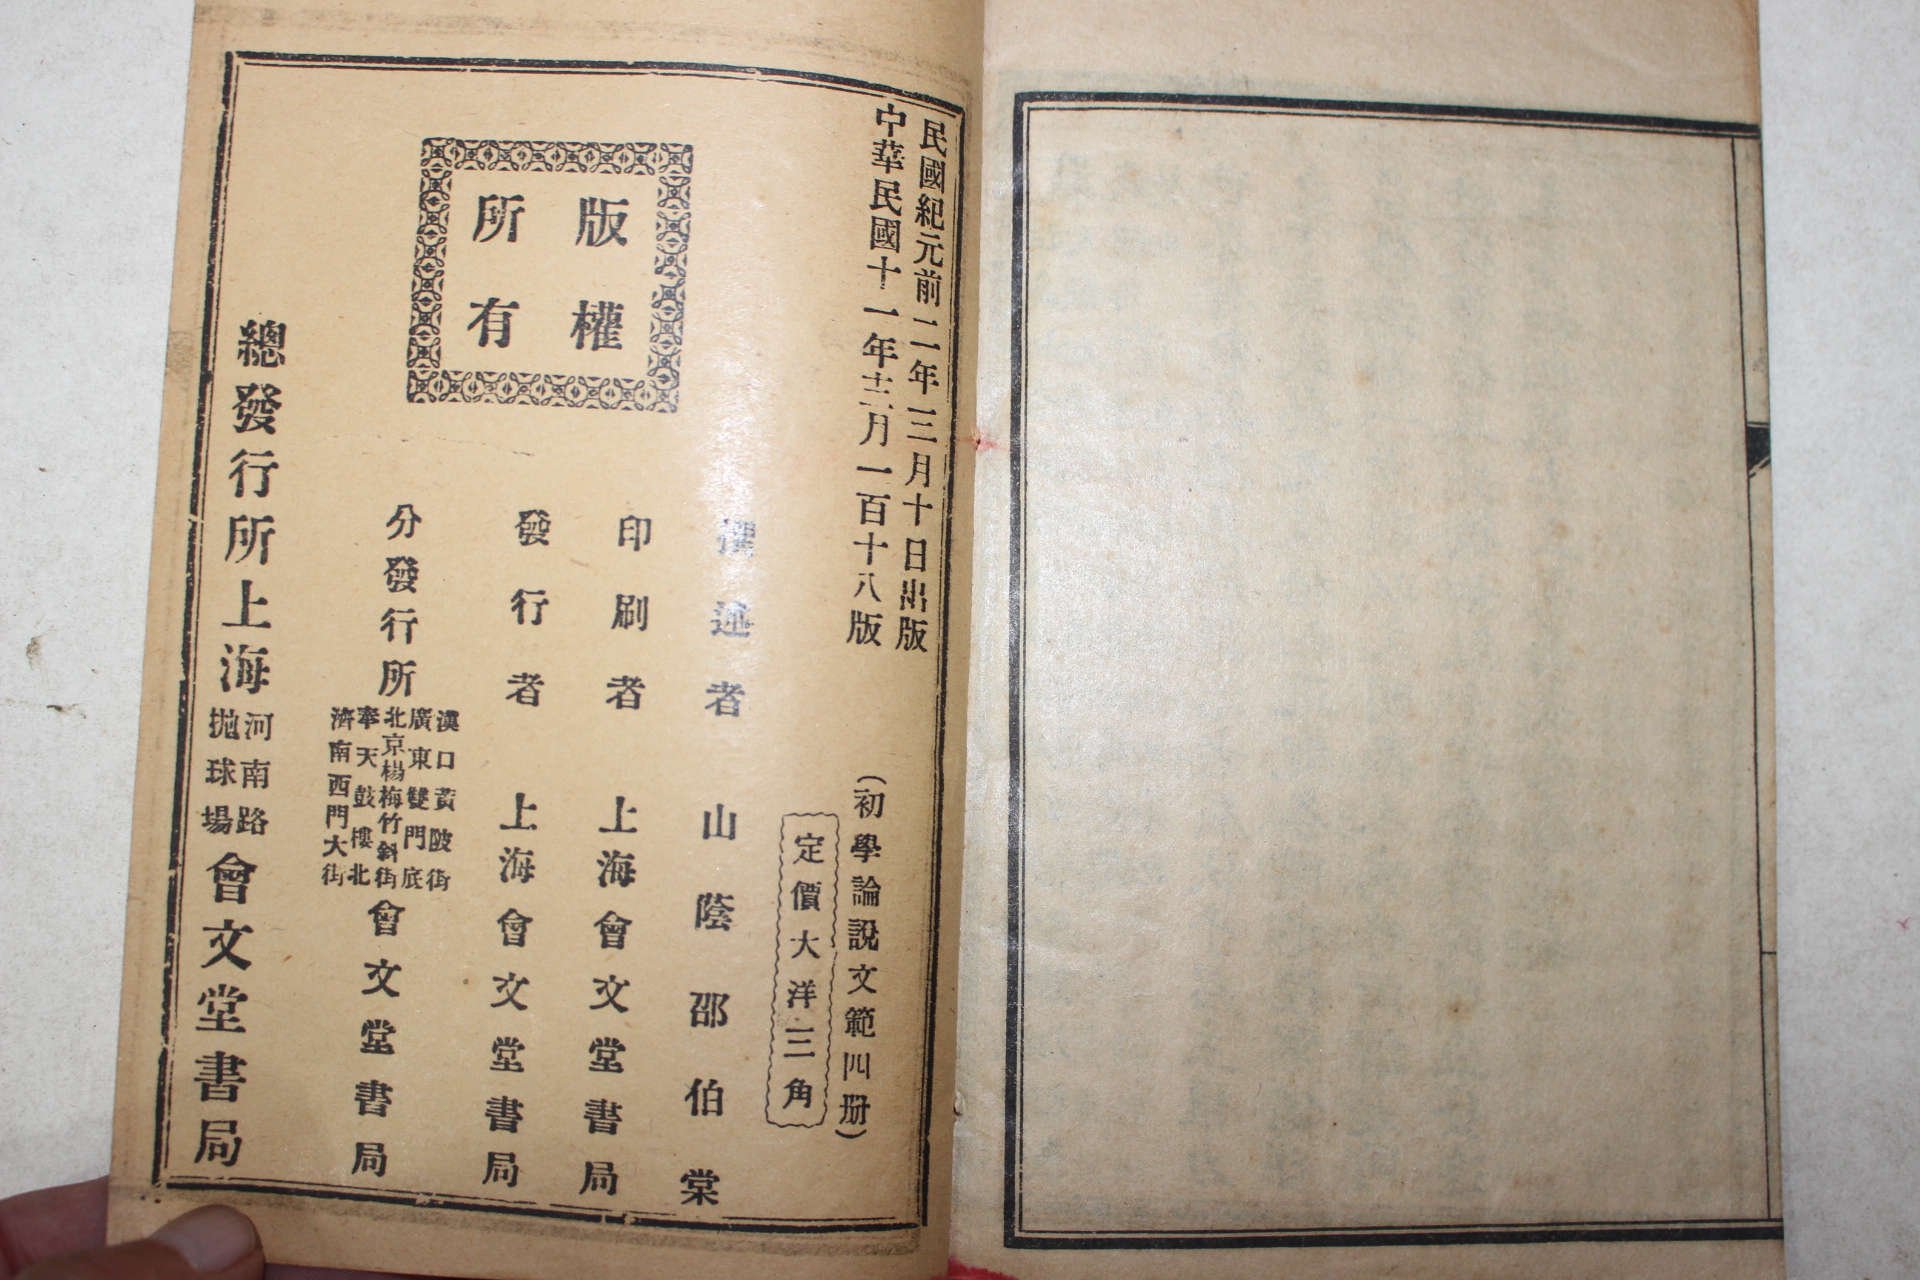 民國紀元前二年三月十日出版
中華民國十一年十二月一百十八版
(初學論說文範四册)
定價大洋三角
版權
所有
撰述者 山陰邵伯棠
印刷者 上海會文堂書局
發行者 上海會文堂書局
分發行所
漢口黃陂街
廣東雙門底
北京楊梅竹斜街
奉天鼓樓北
濟南西門大街
會文堂書局
總發行所上海
河南路
拋球場
會文堂書局